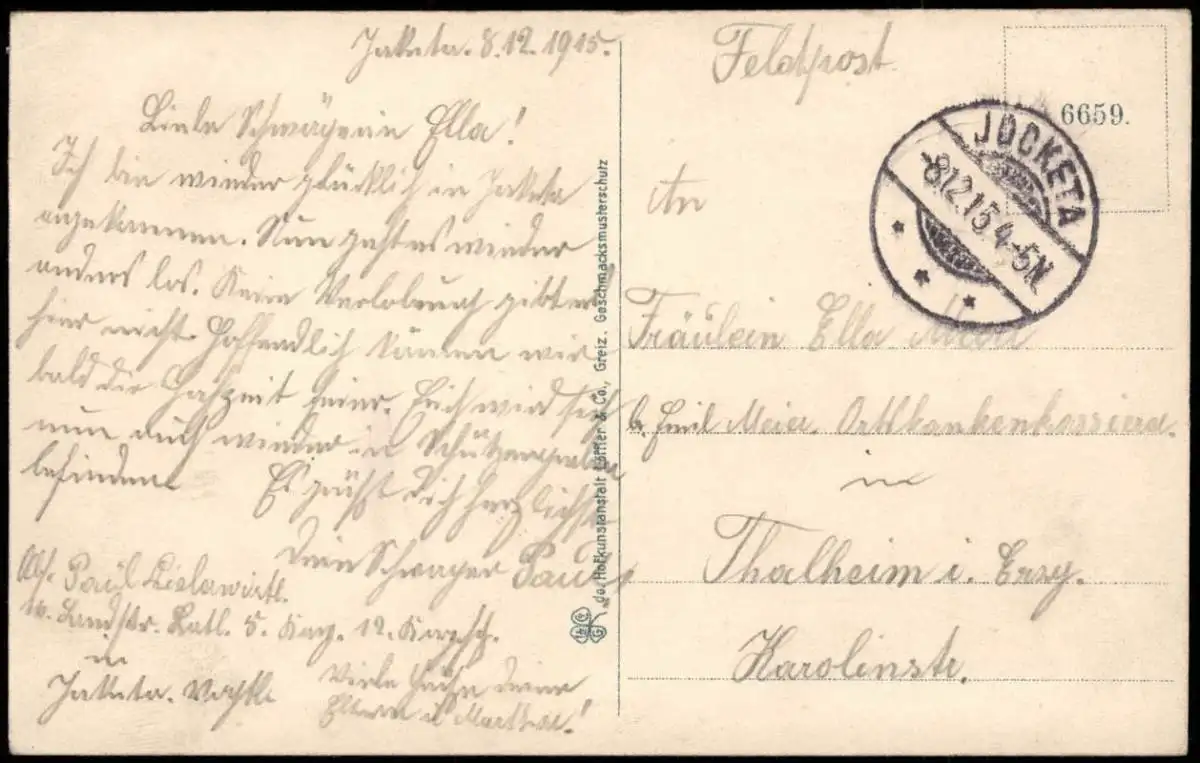 Jaketa. 8.12.1915.
Liebe Schwägerin Ella!
Ich bin wieder glücklich in Jaketa
angekommen. Nun geht es wieder
anders los. Keine Verlobung gibt es
hier nicht. Hoffendlich können wir
bald die Hochzeit feiern. Euch wird sich
nun auch wieder in Schützengraben
befinden.
Es grüßt Dich herzlichst
Dein Schwager Paul
Abs. Paul
Landstr. Batl. 5. Komp. 12. Korpsch.
in
Jaketa. Vogtl.
Viele Grüße Deine
Eltern u.
der Hofkunstanstalt Löffler & Co., Greiz. Geschmacksmusterschutz
Feldpost
6659.
JOCKETA
-8.12.15.4-5N
An
Fräulein Ella Meier
b. Emil Meier. Ortskrankenkassierer
in
Thalheim i. Erzg.
Karolinstr.